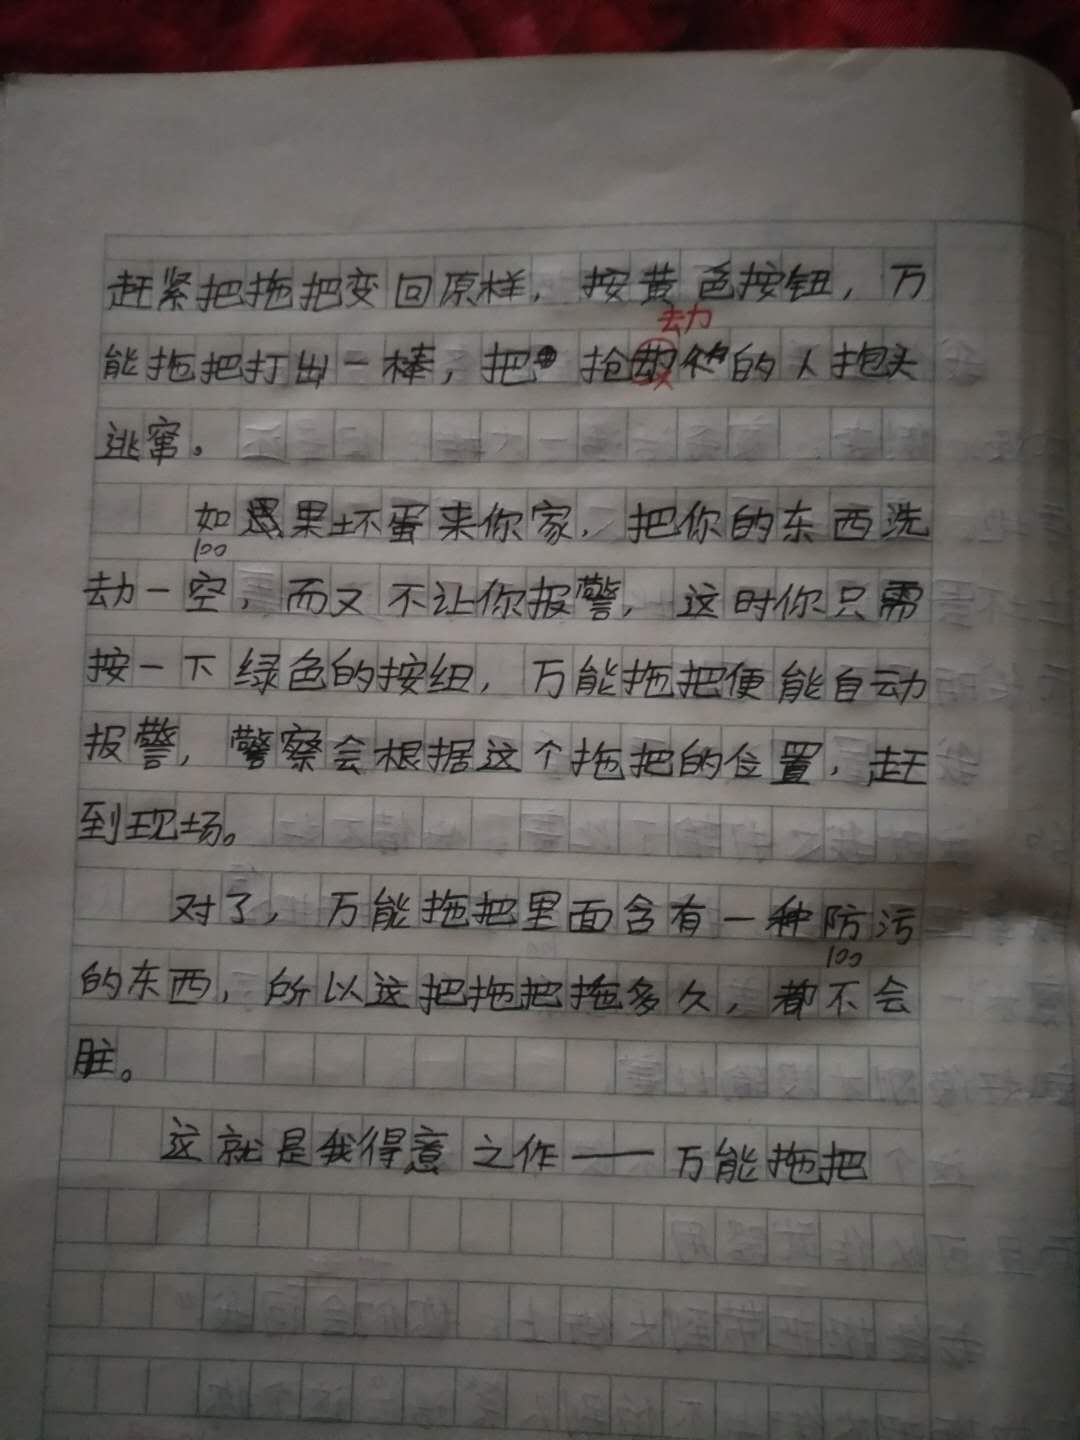 赶紧把拖把变回原样，按黄色按钮，万
去力
能拖把打出一棒，把抢劫你的人抱头
逃窜。
如果坏蛋来你家，把你的东西洗
100
劫一空，而又不让你报警，这时你只需
按一下绿色的按纽，万能拖把便能自动
报警，警察会根据这个拖把的位置，赶
到现场。
对了，万能拖把里面含有一种防污
100
的东西，所以这把拖把拖多久，都不会
脏。
这就是我得意之作——万能拖把